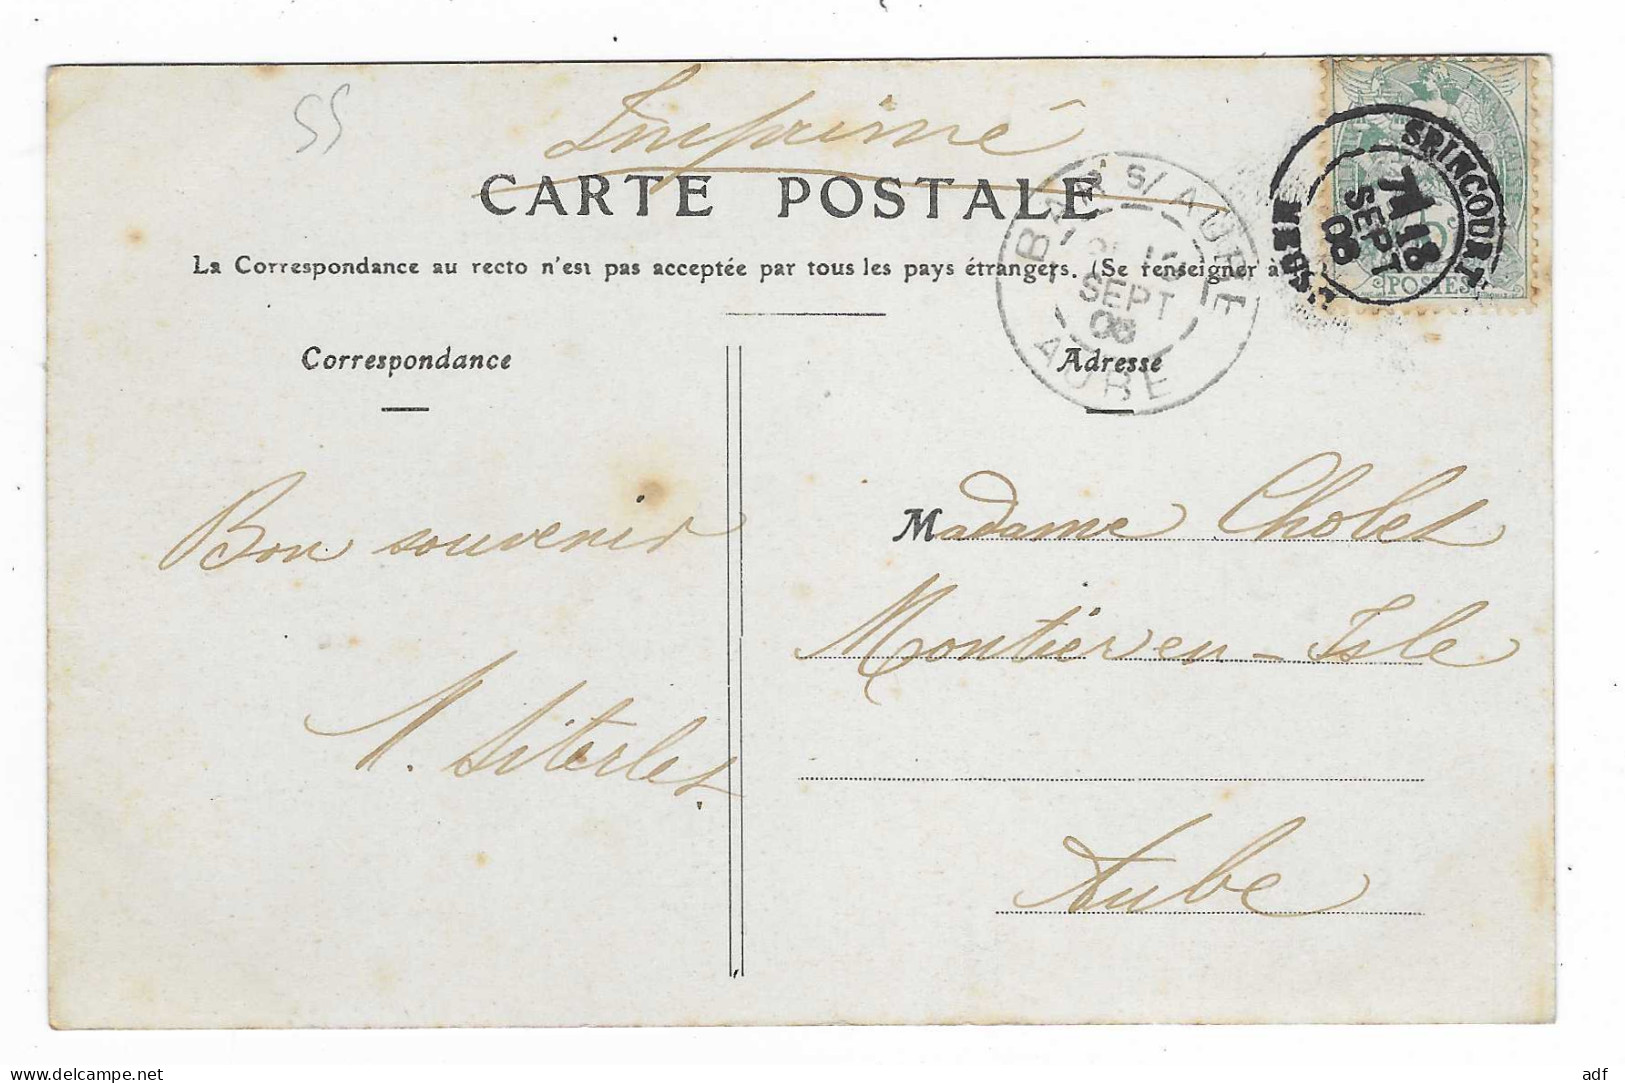 55
Imprimé
CARTE POSTALE
La Correspondance au recto n'est pas acceptée par tous les pays étrangers. (Se renseigner à
Correspondance
Adresse
BAR S/ AUBE
SEPT
08
AUBE
SPINCOURT
18
SEPT
08
MEUSE
5c
POSTES
Bon souvenir
Madame Cholet
Montier en-Isle
Aube
www.delcampe.net
adf